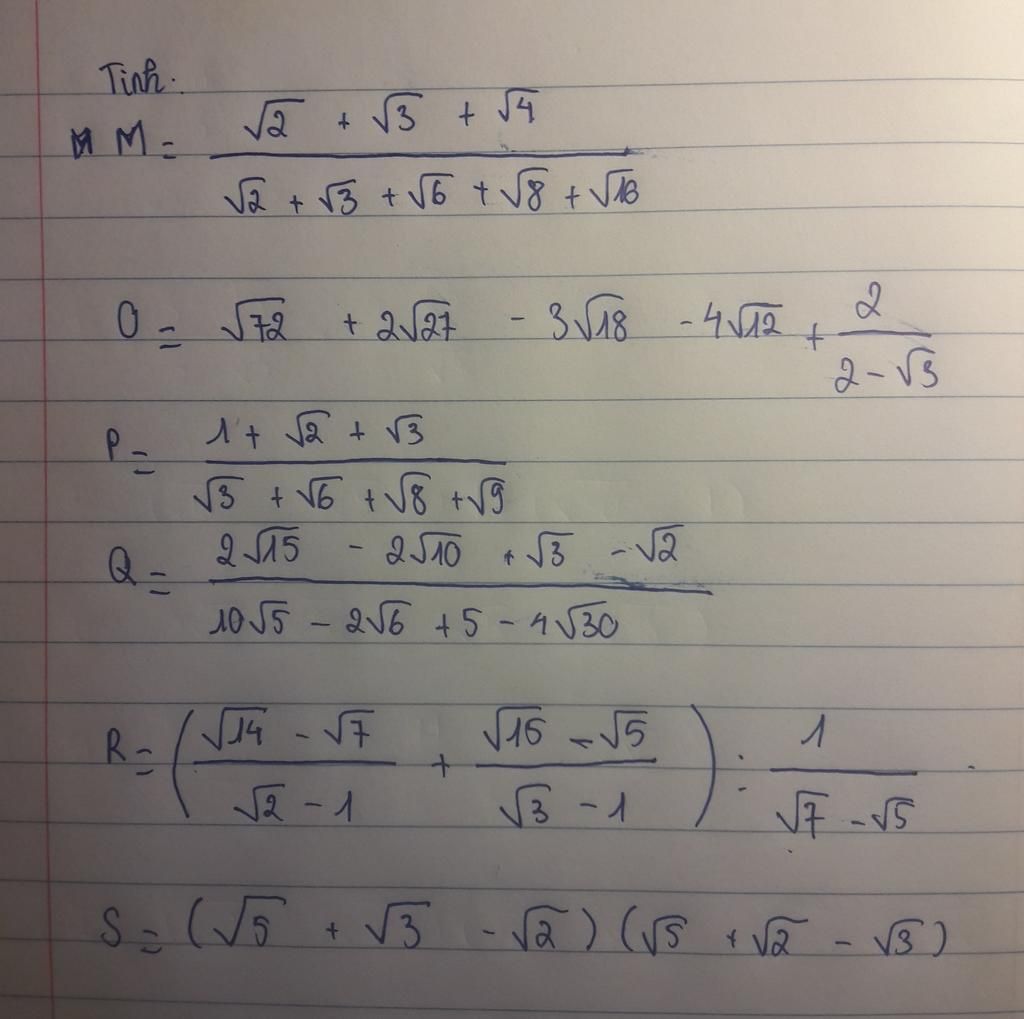 Tính:
M = (√2 + √3 + √4) / (√2 + √3 + √6 + √8 + √16)
O = √72 + 2√27 - 3√18 - 4√12 + 2 / (2 - √3)
P = (1 + √2 + √3) / (√3 + √6 + √8 + √9)
Q = (2√15 - 2√10 + √3 - √2) / (10√5 - 2√6 + 5 - 4√30)
R = ((√14 - √7) / (√2 - 1) + (√15 - √5) / (√3 - 1)) : 1 / (√7 - √5)
S = (√5 + √3 - √2)(√5 + √2 - √3)